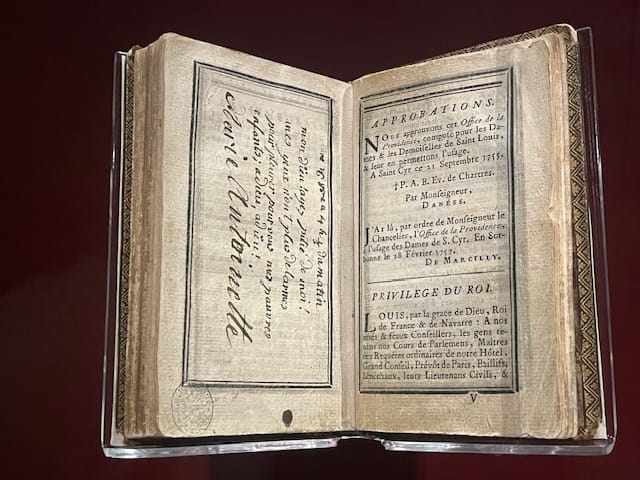 ce 16 8bre a 4 h ½ du matin
mon dieu ayez pitié de moi !
mes yeux n'ont plus de larmes
pour pleurer pour vous mes pauvres
enfants, adieu adieu !
Marie Antoinette
APPROBATIONS.
NOUS approuvons cet Office de la
Providence, composé pour les Da-
mes & les Demoiselles de Saint Louis,
& leur en permettons l'usage.
A Saint Cyr ce 21 Septembre 1755.
† P. A. B. Ev. de Chartres.
Par Monseigneur,
DANÉSE.
J'AI lû, par ordre de Monseigneur le
Chancelier, l'Office de la Providence,
à l'usage des Dames de S. Cyr, En Sor-
bonne le 28 Février 1757.
DE MARCILLY.
PRIVILEGE DU ROI.
LOUIS, par la grace de Dieu, Roi
de France & de Navarre : A nos
amés & féaux Conseillers, les gens te-
nans nos Cours de Parlemens, Maitres
des Requêtes ordinaires de notre Hôtel,
Grand Conseil, Prévôt de Paris, Baillifs,
Sénéchaux, leurs Lieutenans Civils, &
V